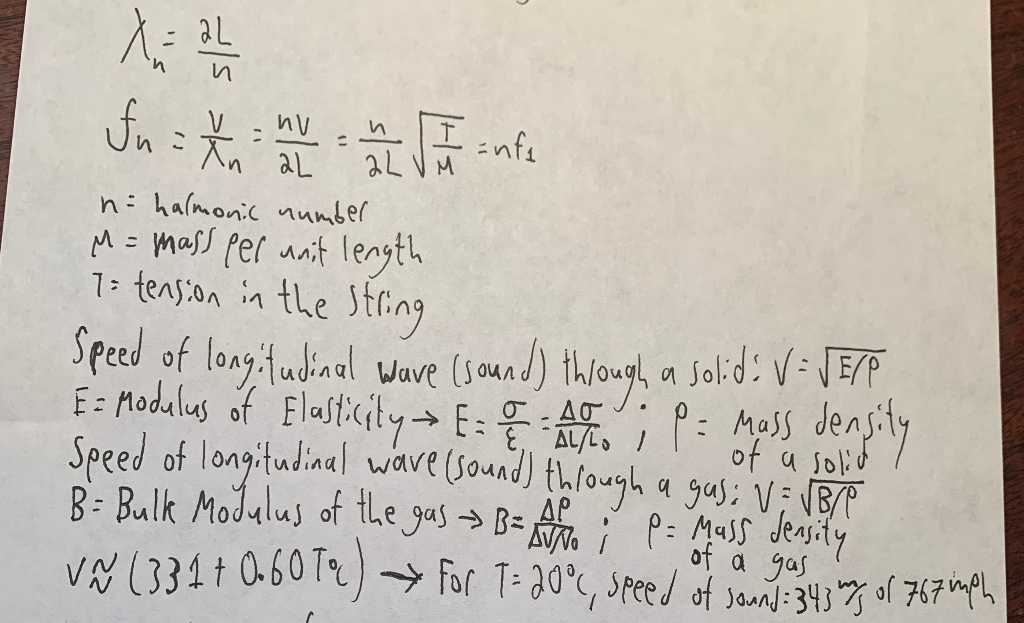 λn = 2L/n
fn = V/λn = nV/2L = n/2L √(T/μ) = nf1
n = harmonic number
μ = mass per unit length
T = tension in the string
Speed of longitudinal wave (sound) through a solid: V = √E/ρ
E = Modulus of Elasticity → E = σ/ε = Δσ/(ΔL/L0) ; ρ = Mass density of a solid
Speed of longitudinal wave (sound) through a gas: V = √B/ρ
B = Bulk Modulus of the gas → B = ΔP/(ΔV/V0) ; ρ = Mass density of a gas
V ≈ (331 + 0.60 T°C) → For T = 20°C, speed of sound = 343 m/s or 767 mph